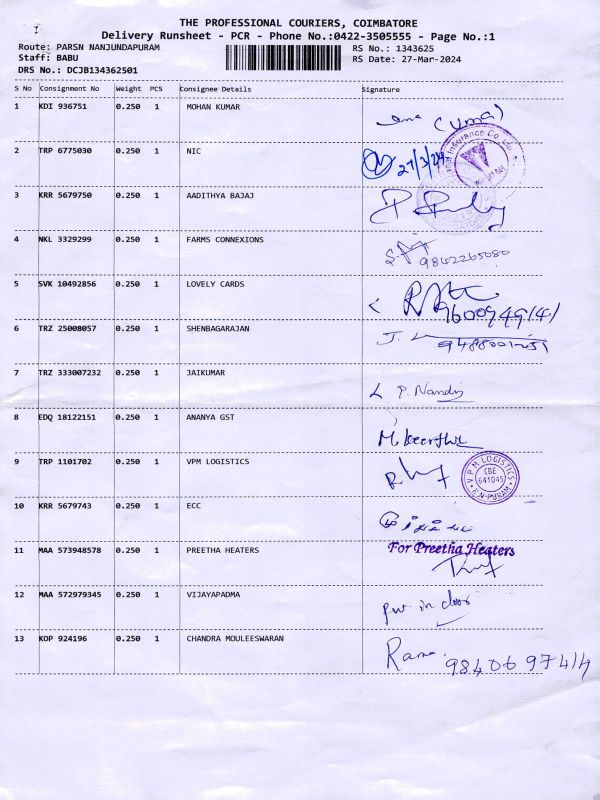 THE PROFESSIONAL COURIERS, COIMBATORE
Delivery Runsheet - PCR - Phone No.:0422-3505555 - Page No.:1
Route: PARSN NANJUNDAPURAM RS No.: 1343625
Staff: BABU RS Date: 27-Mar-2024
DRS No.: DCJB134362501
S No Consignment No Weight PCS Consignee Details Signature
1 KDI 936751 0.250 1 MOHAN KUMAR (uma)
2 TRP 6775030 0.250 1 NIC 27/3/24
Insurance Co. Ltd.
3 KRR 5679750 0.250 1 AADITHYA BAJAJ
4 NKL 3329299 0.250 1 FARMS CONNEXIONS
9842265080
5 SVK 10492856 0.250 1 LOVELY CARDS
9600949141
6 TRZ 25008057 0.250 1 SHENBAGARAJAN J.
7 TRZ 333007232 0.250 1 JAIKUMAR P. Nandi
8 EDQ 18122151 0.250 1 ANANYA GST M. Keerthi
9 TRP 1101702 0.250 1 VPM LOGISTICS
VPM LOGISTICS
CBE
641045
10 KRR 5679743 0.250 1 ECC
11 MAA 573948578 0.250 1 PREETHA HEATERS For Preetha Heaters
12 MAA 572979345 0.250 1 VIJAYAPADMA put in door
13 KOP 924196 0.250 1 CHANDRA MOULEESWARAN Rama